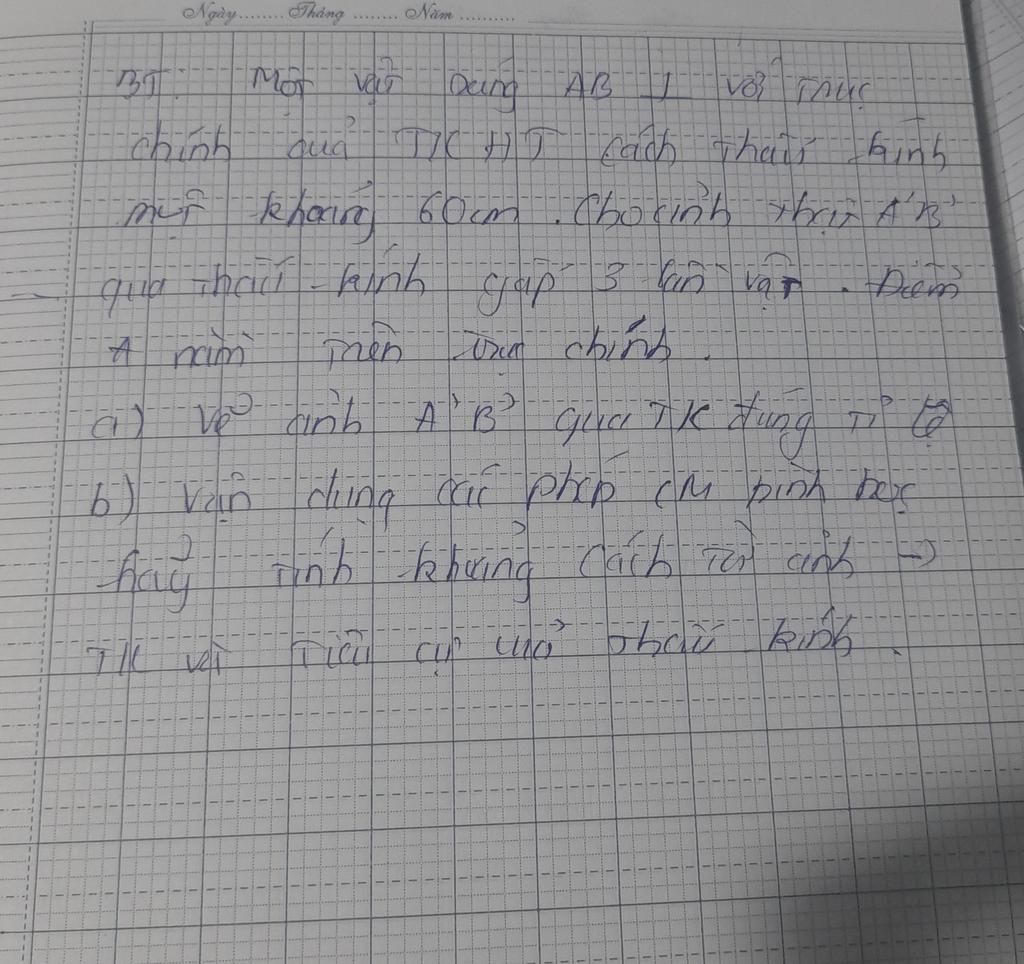 Ngày......... Tháng ......... Năm ...........
BT: Một vật sáng AB ⊥ với trục
chính của TKHT cách thấu kính
một khoảng 60cm. Cho ảnh thật A'B'
qua thấu kính gấp 3 lần vật. Điểm
A nằm trên trục chính.
a) Vẽ ảnh A'B' qua TK đúng tỉ lệ
b) Vận dụng các phép CM hình học
hãy tính khoảng cách từ ảnh →
TK và tiêu cự của thấu kính.